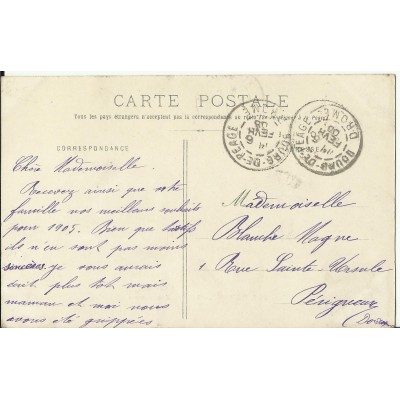 CARTE POSTALE
Tous les pays étrangers n'acceptent pas la correspondance au recto
CORRESPONDANCE
Chère Mademoiselle.
Recevez ainsi que votre
famille nos meilleurs souhaits
pour 1905. Bien que tardifs
ils n'en sont pas moins
sincères, je vous aurais
écrit plus tôt mais
maman et moi nous
avons été grippées
BOURG-DE-PEAGE
FEVR
BOURG-DE-PEAGE
DROME
FEVR
Mademoiselle
Blanche Magne
1 Rue Sainte-Ursule
Périgueux